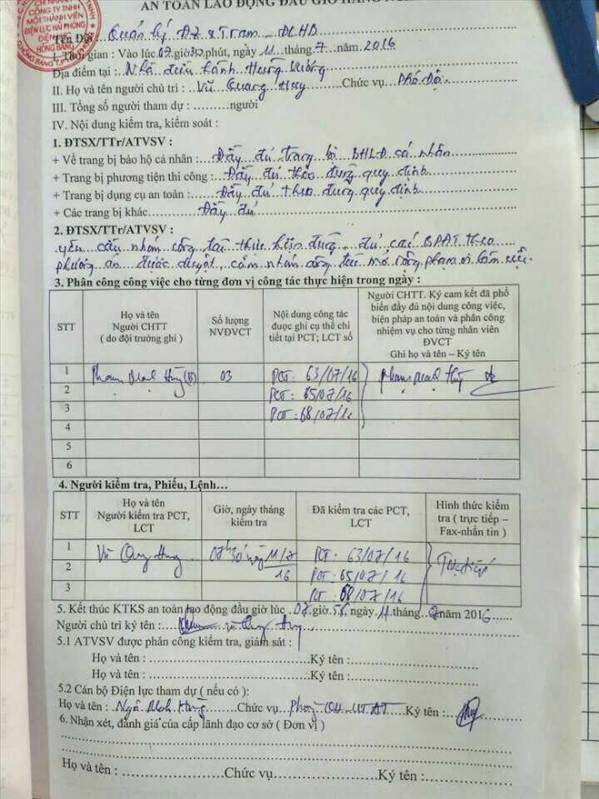 AN TOÀN LAO ĐỘNG ĐẦU GIỜ
CÔNG TY TNHH
MỘT THÀNH VIÊN
ĐIỆN LỰC HẢI PHÒNG
HỒNG BÀNG
Tên Đội: Quản lý ĐZ & Trạm - ĐLHB
I. Thời gian : Vào lúc 07 giờ 30 phút, ngày 11 tháng 7 năm 2016
Địa điểm tại : Nhà điều hành Hùng Vương
II. Họ và tên người chủ trì : Vũ Quang Huy Chức vụ Phó Đội
III. Tổng số người tham dự : người
IV. Nội dung kiểm tra, kiểm soát :
1. ĐTSX/TTr/ATVSV :
+ Về trang bị bảo hộ cá nhân : Đầy đủ trang bị BHLĐ cá nhân
+ Trang bị phương tiện thi công : Đầy đủ theo đúng quy định
+ Trang bị dụng cụ an toàn : Đầy đủ theo đúng quy định
+ Các trang bị khác Đầy đủ
2. ĐTSX/TTr/ATVSV :
yêu cầu nhóm công tác thực hiện đúng, đủ các BPAT theo
phương án được duyệt, cấm nhóm công tác mở rộng phạm vi làm việc.
3. Phân công công việc cho từng đơn vị công tác thực hiện trong ngày :
STT
Họ và tên Người CHTT ( do đội trưởng ghi )
Số lượng NVĐVCT
Nội dung công tác được ghi cụ thể chi tiết tại PCT; LCT số
Người CHTT. Ký cam kết đã phổ biến đầy đủ nội dung công việc, biện pháp an toàn và phân công nhiệm vụ cho từng nhân viên ĐVCT
Ghi họ và tên – Ký tên
1 Phạm Mạnh 03 PCT: 63/07/16 Phạm Mạnh
2 PCT: 65/07/16
3 PCT: 68/07/16
4
5
6
4. Người kiểm tra, Phiếu, Lệnh…
STT
Họ và tên Người kiểm tra PCT, LCT
Giờ, ngày tháng kiểm tra
Đã kiểm tra các PCT, LCT
Hình thức kiểm tra ( trực tiếp – Fax-nhắn tin )
1 Vũ Quang Huy 07h30 ngày 11/7 PCT: 63/07/16 Trực tiếp
2 16 PCT: 65/07/16
3 PCT: 68/07/16
5. Kết thúc KTKS an toàn lao động đầu giờ lúc 07 giờ 55 ngày 11 tháng 7 năm 2016
Người chủ trì ký tên : Vũ Quang Huy
5.1 ATVSV được phân công kiểm tra, giám sát :
Họ và tên : Ký tên :
Họ và tên : Ký tên :
5.2 Cán bộ Điện lực tham dự ( nếu có ):
Họ và tên : Ngô Chức vụ Ký tên :
6. Nhận xét, đánh giá của cấp lãnh đạo cơ sở ( Đơn vị )
Họ và tên : Chức vụ Ký tên :